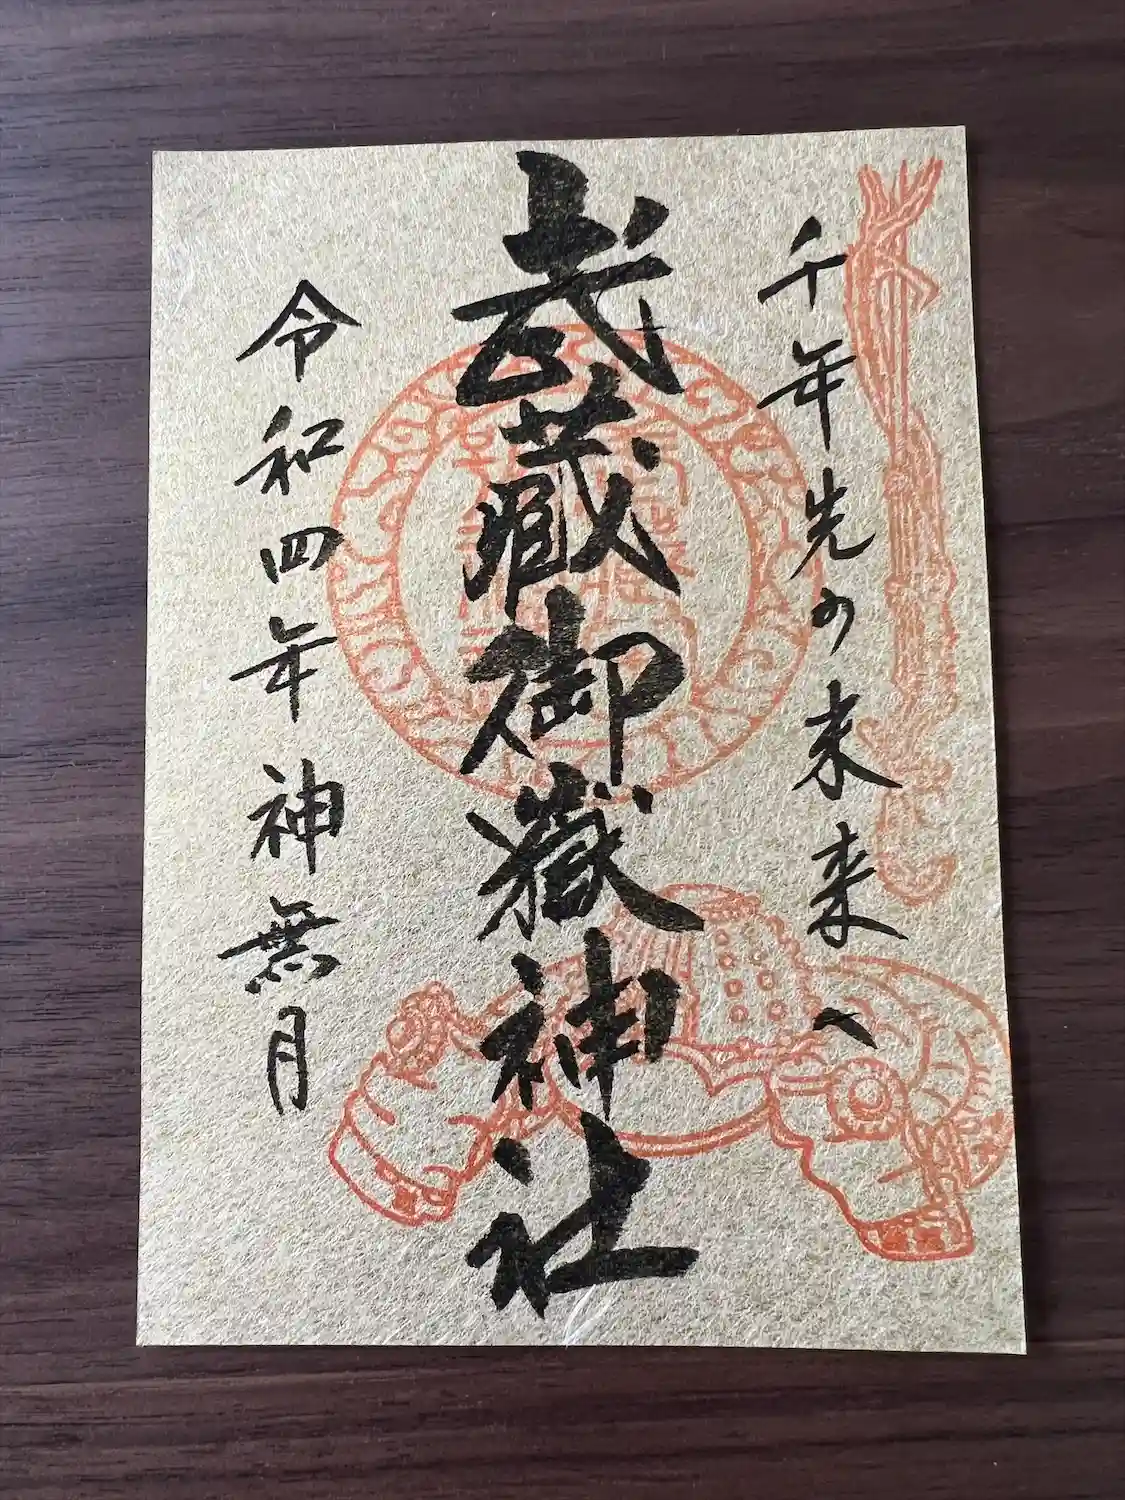 千年先の未来へ
武蔵御嶽神社
令和四年神無月